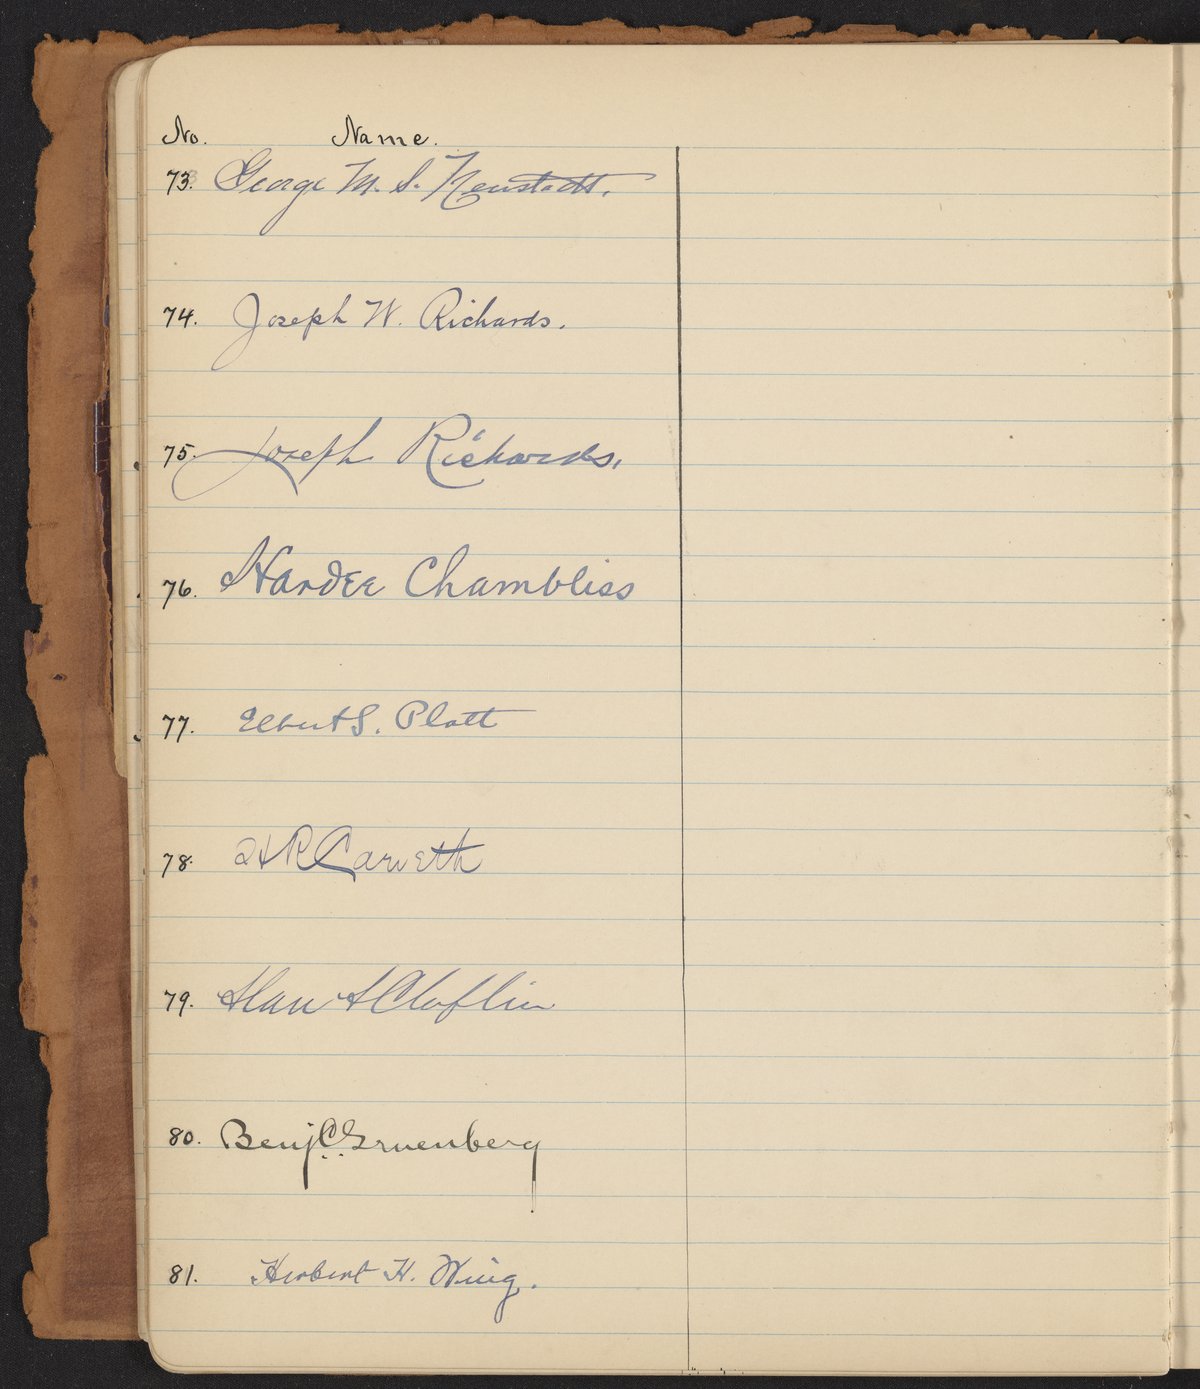 No. Name.
73. George M. S. Neustadt.
74. Joseph W. Richards.
75. Joseph Richards.
76. Hardee Chambliss
77. Elbert S. Platt
78. H R Carveth
79. Alan A Claflin
80. Benj. C. Gruenberg
81. Herbert H. Wing.